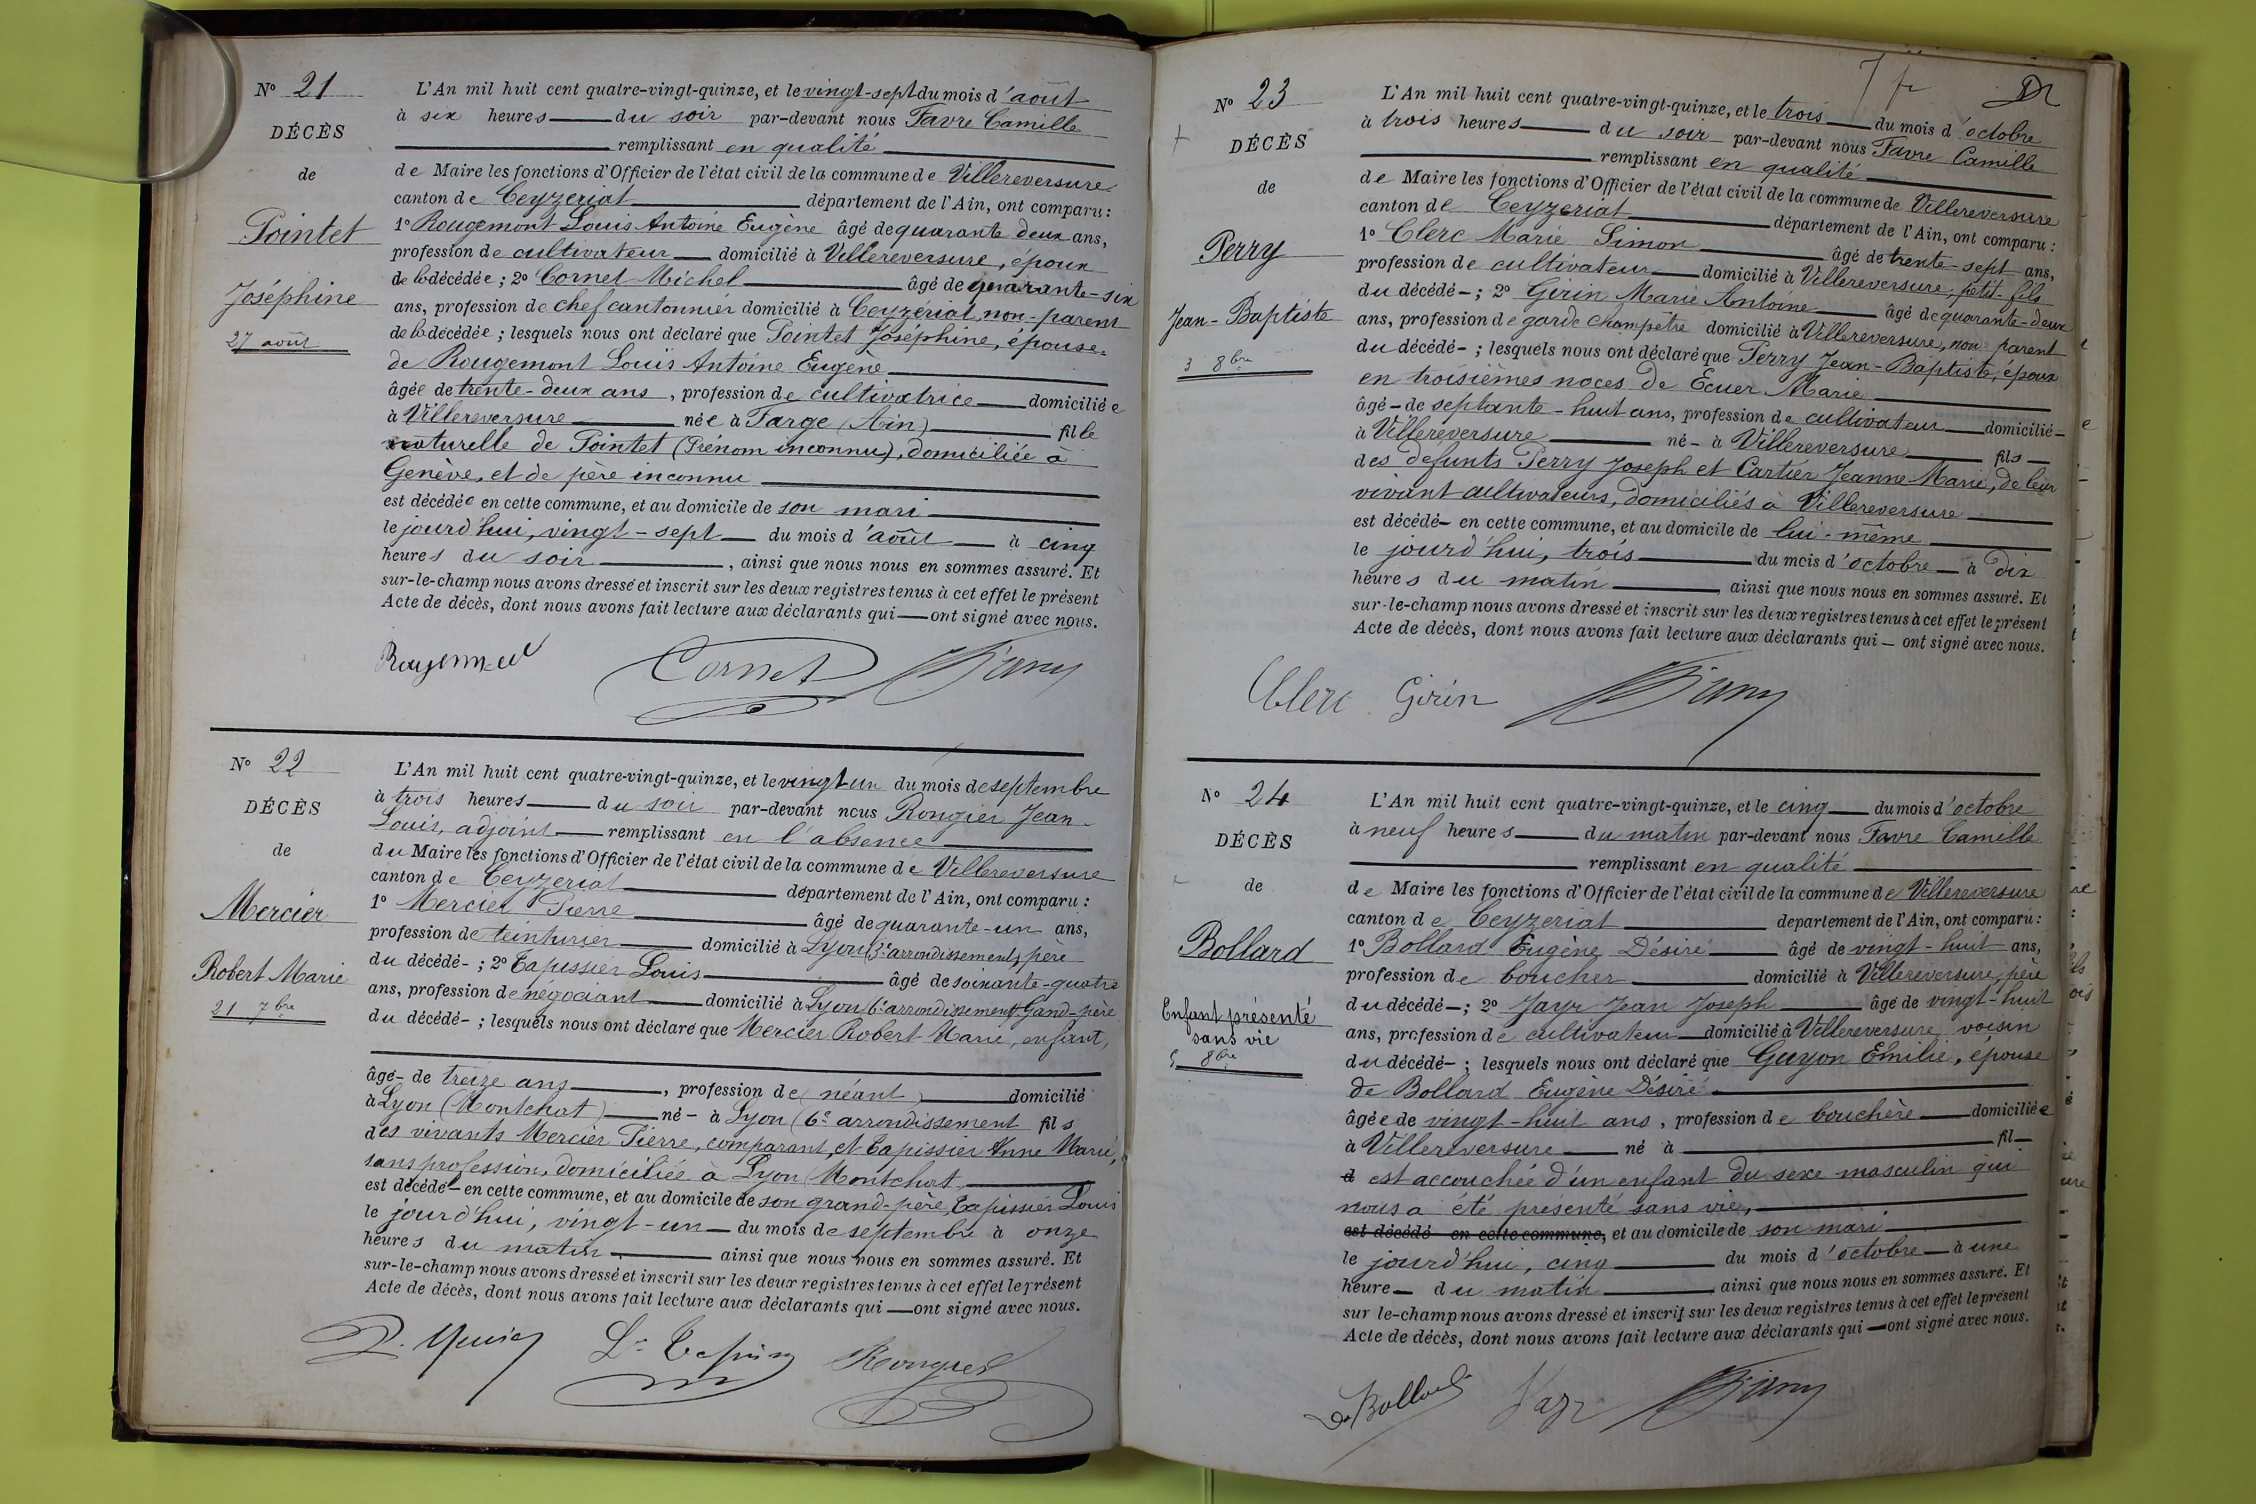 N° 21
DÉCÈS
de
Pointet
Joséphine
27 août
L'An mil huit cent quatre-vingt-quinze, et le vingt-sept du mois d'août
à six heures du soir par-devant nous Favre Camille
remplissant en qualité
de Maire les fonctions d'Officier de l'état civil de la commune de Villereversure
canton de Ceyzériat département de l'Ain, ont comparu :
1° Rougemont Louis Antoine Eugène âgé de quarante deux ans,
profession de cultivateur domicilié à Villereversure, époux
de la décédée ; 2° Cornet Michel âgé de quarante-six
ans, profession de chef cantonnier domicilié à Ceyzériat, non-parent
de la décédée ; lesquels nous ont déclaré que Pointet Joséphine, épouse
de Rougemont Louis Antoine Eugène
âgée de trente-deux ans, profession de cultivatrice domiciliée
à Villereversure née à Farge (Ain) fille
naturelle de Pointet (Prénom inconnu), domiciliée à
Genève, et de père inconnu
est décédée en cette commune, et au domicile de son mari
le jourd'hui, vingt-sept du mois d'août à cinq
heures du soir, ainsi que nous nous en sommes assuré. Et
sur-le-champ nous avons dressé et inscrit sur les deux registres tenus à cet effet le présent
Acte de décès, dont nous avons fait lecture aux déclarants qui — ont signé avec nous.
Cornet
N° 22
DÉCÈS
de
Mercier
Robert Marie
21 7bre
L'An mil huit cent quatre-vingt-quinze, et le vingt un du mois de septembre
à trois heures du soir par-devant nous Rongier Jean
Louis, adjoint remplissant en l'absence
du Maire les fonctions d'Officier de l'état civil de la commune de Villereversure
canton de Ceyzériat département de l'Ain, ont comparu :
1° Mercier Pierre âgé de quarante-un ans,
profession de teinturier domicilié à Lyon (3e arrondissement), père
du décédé- ; 2° Tapissier Louis âgé de soixante-quatre
ans, profession de négociant domicilié à Lyon (6e arrondissement) Gand-père
du décédé- ; lesquels nous ont déclaré que Mercier Robert Marie, enfant,
âgé- de treize ans, profession de (néant) domicilié
à Lyon (Montchat) né- à Lyon (6e arrondissement fils
des vivants Mercier Pierre, comparant, et Tapissier Anne Marie,
sans profession, domiciliée à Lyon Montchat
est décédé- en cette commune, et au domicile de son grand-père, Tapissier Louis
le jourd'hui, vingt-un du mois de septembre à onze
heures du matin ainsi que nous nous en sommes assuré. Et
sur-le-champ nous avons dressé et inscrit sur les deux registres tenus à cet effet le présent
Acte de décès, dont nous avons fait lecture aux déclarants qui — ont signé avec nous.
N° 23
DÉCÈS
de
Perry
Jean-Baptiste
3 8bre
L'An mil huit cent quatre-vingt-quinze, et le trois du mois d'octobre
à trois heures du soir par-devant nous Favre Camille
remplissant en qualité
de Maire les fonctions d'Officier de l'état civil de la commune de Villereversure
canton de Ceyzériat département de l'Ain, ont comparu :
1° Clerc Marie Simon âgé de trente-sept ans,
profession de cultivateur domicilié à Villereversure, petit-fils
du décédé- ; 2° Girin Marie Antoine âgé de quarante-deux
ans, profession de garde champêtre domicilié à Villereversure, non parent
du décédé- ; lesquels nous ont déclaré que Perry Jean-Baptiste, époux
en troisièmes noces de Ecuer Marie
âgé- de septante-huit ans, profession de cultivateur domicilié-
à Villereversure né- à Villereversure fils
des défunts Perry Joseph et Cartier Jeanne Marie, de leur
vivant cultivateurs, domiciliés à Villereversure
est décédé- en cette commune, et au domicile de lui-même
le jourd'hui, trois du mois d'octobre à dix
heures du matin ainsi que nous nous en sommes assuré. Et
sur-le-champ nous avons dressé et inscrit sur les deux registres tenus à cet effet le présent
Acte de décès, dont nous avons fait lecture aux déclarants qui — ont signé avec nous.
Clerc Girin
N° 24
DÉCÈS
de
Bollard
Enfant présenté
sans vie
5 8bre
L'An mil huit cent quatre-vingt-quinze, et le cinq du mois d'octobre
à neuf heures du matin par-devant nous Favre Camille
remplissant en qualité
de Maire les fonctions d'Officier de l'état civil de la commune de Villereversure
canton de Ceyzériat département de l'Ain, ont comparu :
1° Bollard Eugène Désiré âgé de vingt-huit ans,
profession de boucher domicilié à Villereversure, père
du décédé- ; 2° Jayr Jean Joseph âgé de vingt-huit
ans, profession de cultivateur domicilié à Villereversure, voisin
du décédé- ; lesquels nous ont déclaré que Guyon Emilie, épouse
de Bollard Eugène Désiré
âgée de vingt-huit ans, profession de bouchère domiciliée
à Villereversure né à fil
est accouchée d'un enfant du sexe masculin qui
nous a été présenté sans vie,
est décédé en cette commune, et au domicile de son mari
le jourd'hui, cinq du mois d'octobre à une
heure du matin ainsi que nous nous en sommes assuré. Et
sur le-champ nous avons dressé et inscrit sur les deux registres tenus à cet effet le présent
Acte de décès, dont nous avons fait lecture aux déclarants qui — ont signé avec nous.
Bollard Jayr